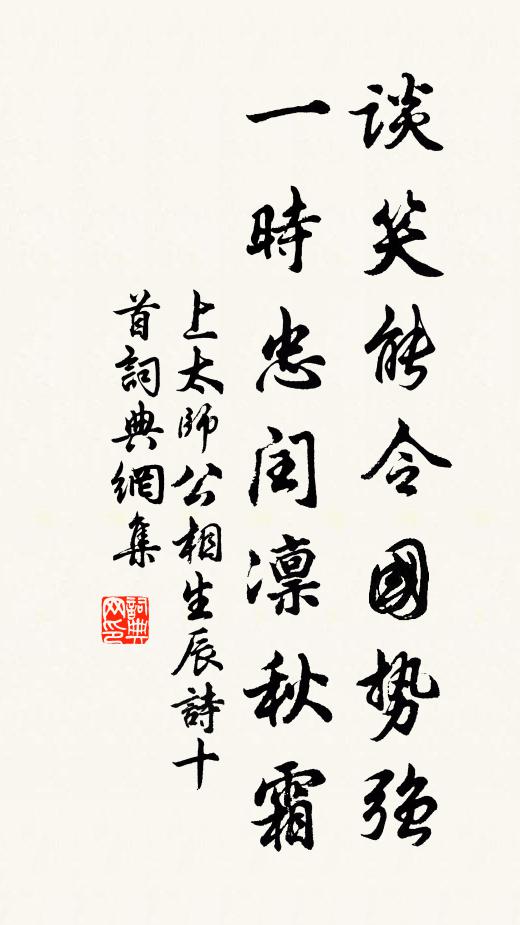 谈笑能令國势强
一時忠闰凛秋霜
上太師公相生辰詩十
首詞典網集
詞典
网印